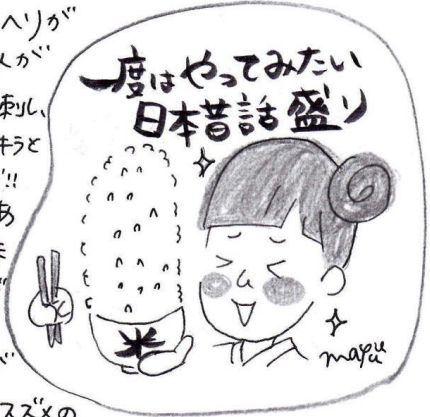 ヘリが
が
刺し、
キラと
!!
あ
が
スズメの
一度はやってみたい
日本昔話盛り
米
mayu